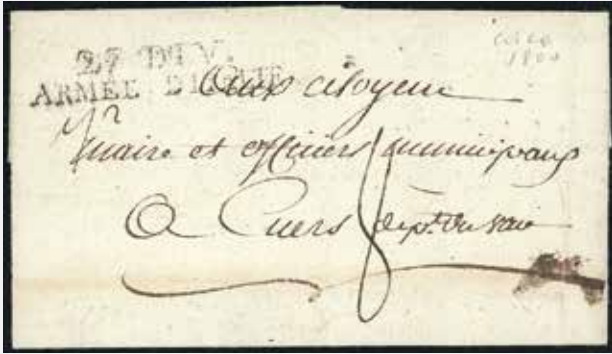 DIV.
ARMÉE D'ITALIE
circa
1800
Aux citoyens
maire et officiers municipaux
A Cuers dept. du var
8